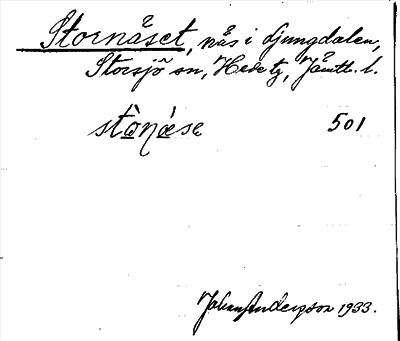 Stornäset, näs i Ljungdalen,
Storsjö sn, Hede tg, Jämtl. l.
stò̱ŋá̱se 501
Johan Anderson 1933.